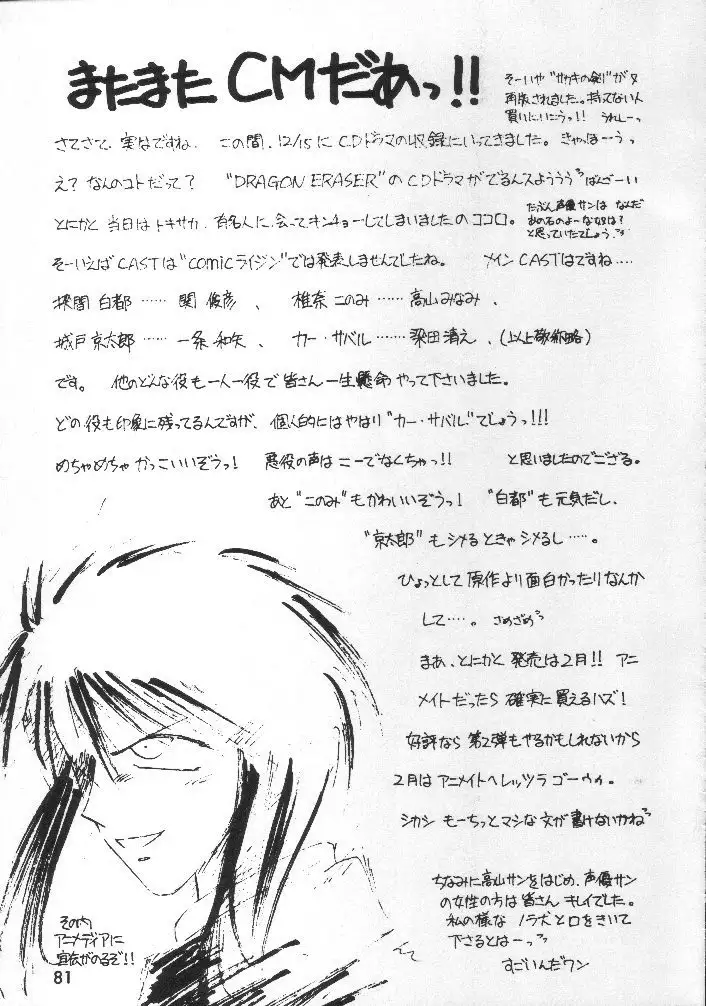 またまたCMだあっ!!
そーいや“サカキの剣”が又
再版されました。持ってない人
買いにいこうっ!! うれしーっ
さてさて、実はですね、この間、12/15にCDドラマの収録にいってきました。きゃっほーうっ
え?なんのコトだって? “DRAGON ERASER”のCDドラマがでるんスようううばんざーい
とにかく当日はトキサカ、有名人に会ってキンチョーしてしまいましたのココロ。
たぶん声優サンは なんだ
あの石のよーな奴は?
と思っていたでしょう。
そーいえばCASTは“comicライジン”では発表しませんでしたね。 メインCASTはですね‥‥
採間 白都‥‥‥関 俊彦、椎奈このみ‥‥‥高山みなみ、
城戸京太郎‥‥‥一条和矢、カー・サバル‥‥‥梁田清え、(以上敬称略)
です。 他のどんな役も一人一役で皆さん一生懸命やって下さいました。
どの役も印象に残ってるんですが、個人的にはやはり“カー・サバル”でしょうっ!!!
めちゃめちゃ かっこいいぞうっ! 悪役の声はこーでなくちゃっ!! と思いましたのでござる。
あと“このみ”もかわいいぞうっ! “白都”も元気だし、
“京太郎”もシメるときゃシメるし‥‥。
ひょっとして原作より面白かったりなんか
して‥‥。 さめざめ
まあ、とにかく 発売は2月!! アニ
メイトだったら確実に買えるハズ!
好評なら 第2弾もやるかもしれないから
2月はアニメイトへレッツラゴーウゥ。
シカシ もーちっとマシな文が書けないかね
ちなみに高山サンをはじめ、声優サン
の女性の方は皆さん キレイでした。
私の様な ノラ犬と口をきいて
下さるとはーっ
すごいんだワン
その内
アニメディアに
宣伝がのるぞ!!
81